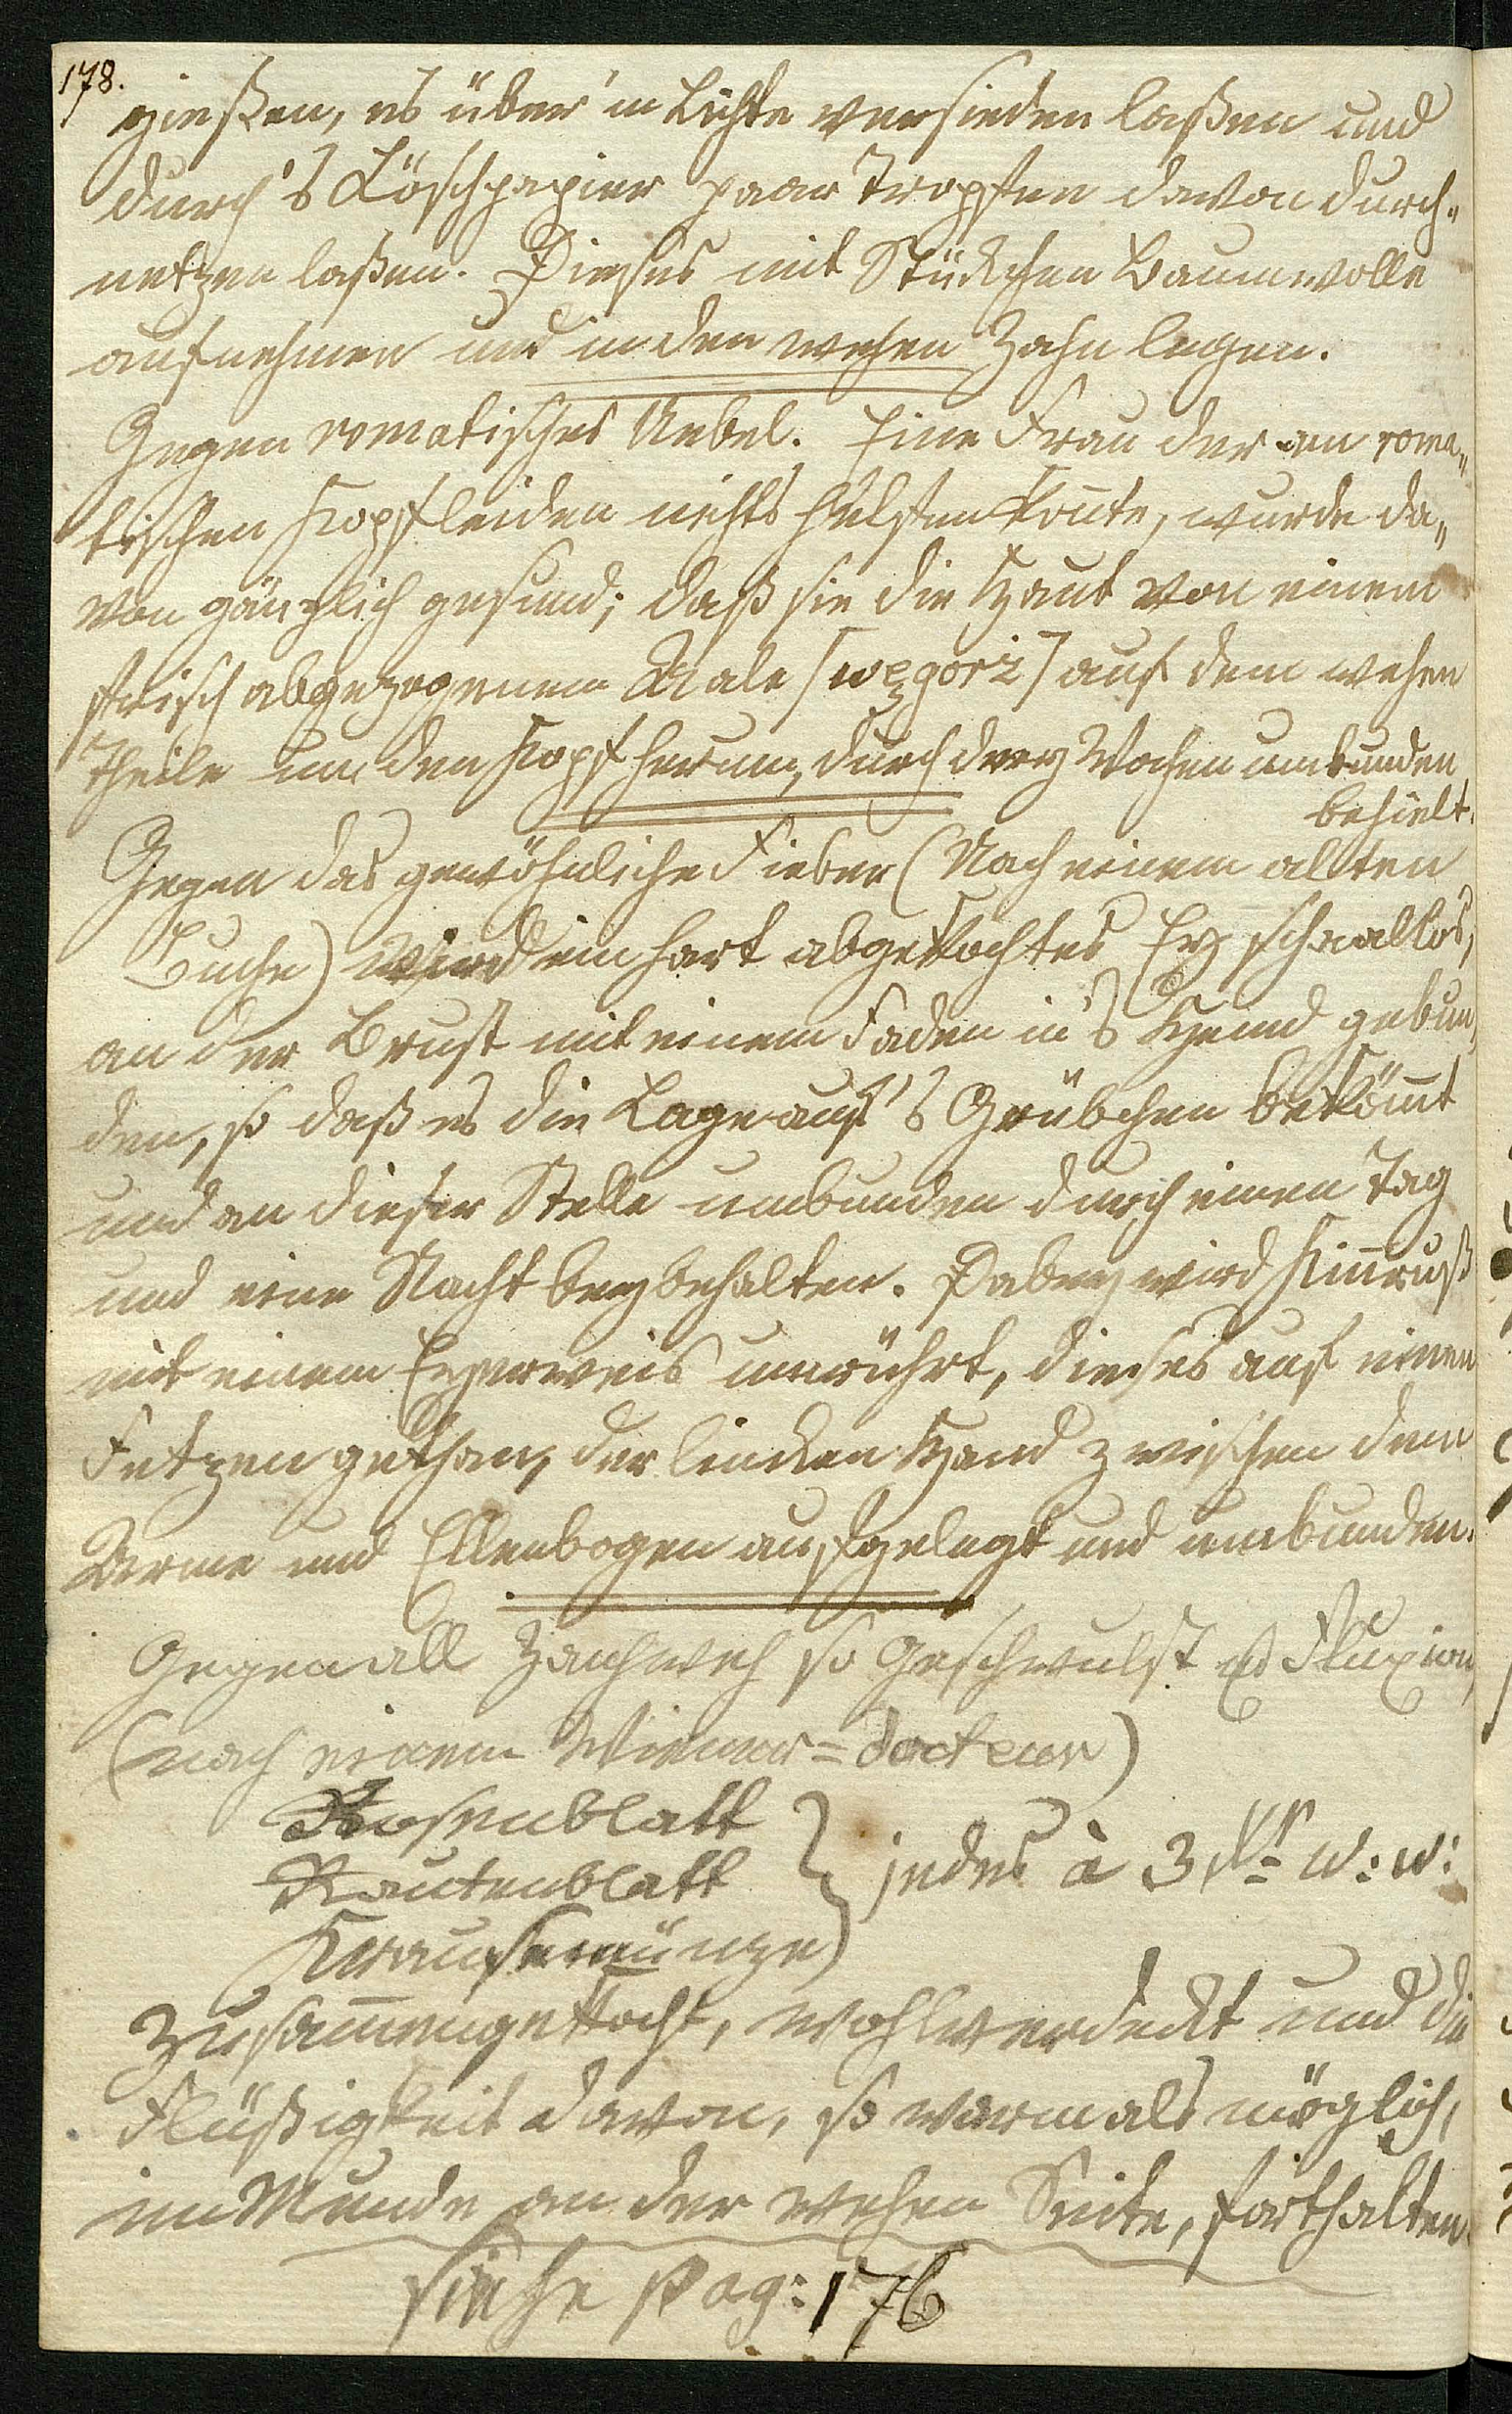 178.
gießen, es über'm Lichte versieden laßen und
durch's Löschpapier paar Tropfen davon durch„
netzen laßen. Dieses mit Stückchen Baumwolle
aufnehmen und in den wehen Zahn legen.
Gegen romatisches Uebel. Eine Frau der an roma„
tischen Kopfleiden nichts helfen koñte, wurde da„
von gänzlich gesund; daß sie die Haut von einem
frisch abgezogenem Aale [węgorz] auf dem wehen
Theile um den Kopf herum, durch drey Wochen umbunden
behielt.
Gegen das gewöhnliche Fieber (Nach einem alten
Buche) Wird ein hart abgekochtes Ey schaallos,
an der Brust mit einem Faden in's Hemd gebun„
den, so daß es die Lage auf's Grübchen beköm̄t
und an dieser Stelle umbunden durch einen Tag
und eine Nacht beybehalten. Dabey wird Kien̄ruß
mit einem Eyerweis umrührt, dieses auf einen
Fetzen gethan, der linken Hand zwischen dem
Arme und Ellenbogen aufgelegt und umbunden.
Gegen all Zahnweh so Geschwulst als Fluxion,
(nach einem Wiener=docteur)
Rosenblatt
Rautenblatt } jedes à 3 Xr w: w:
Krausemünze
zusam̄engekocht, wohlverdeckt und die
Flüßigkeit davon, so warm als möglich,
im Munde an der wehen Seite, forthalten.
siehe pag: 176